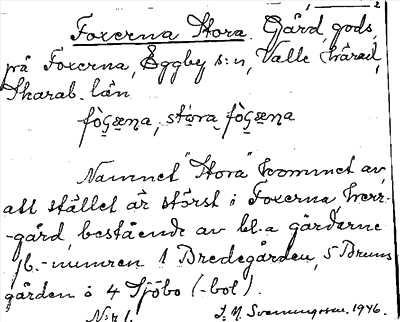 1 2
Foxerna Stora. Gård, gods,
på Foxerna, Eggby s:n, Valle härad,
Skarab. län
stora
Namnet "Stora" kommet av,
att stället är störst i Foxerna, herr-
-gård, bestående av bl.a gårdarne
jb.-numren 1 Bredegården, 5 Bruns
gården o 4 Sjöbo (-bol).
N:r 1. 1946.